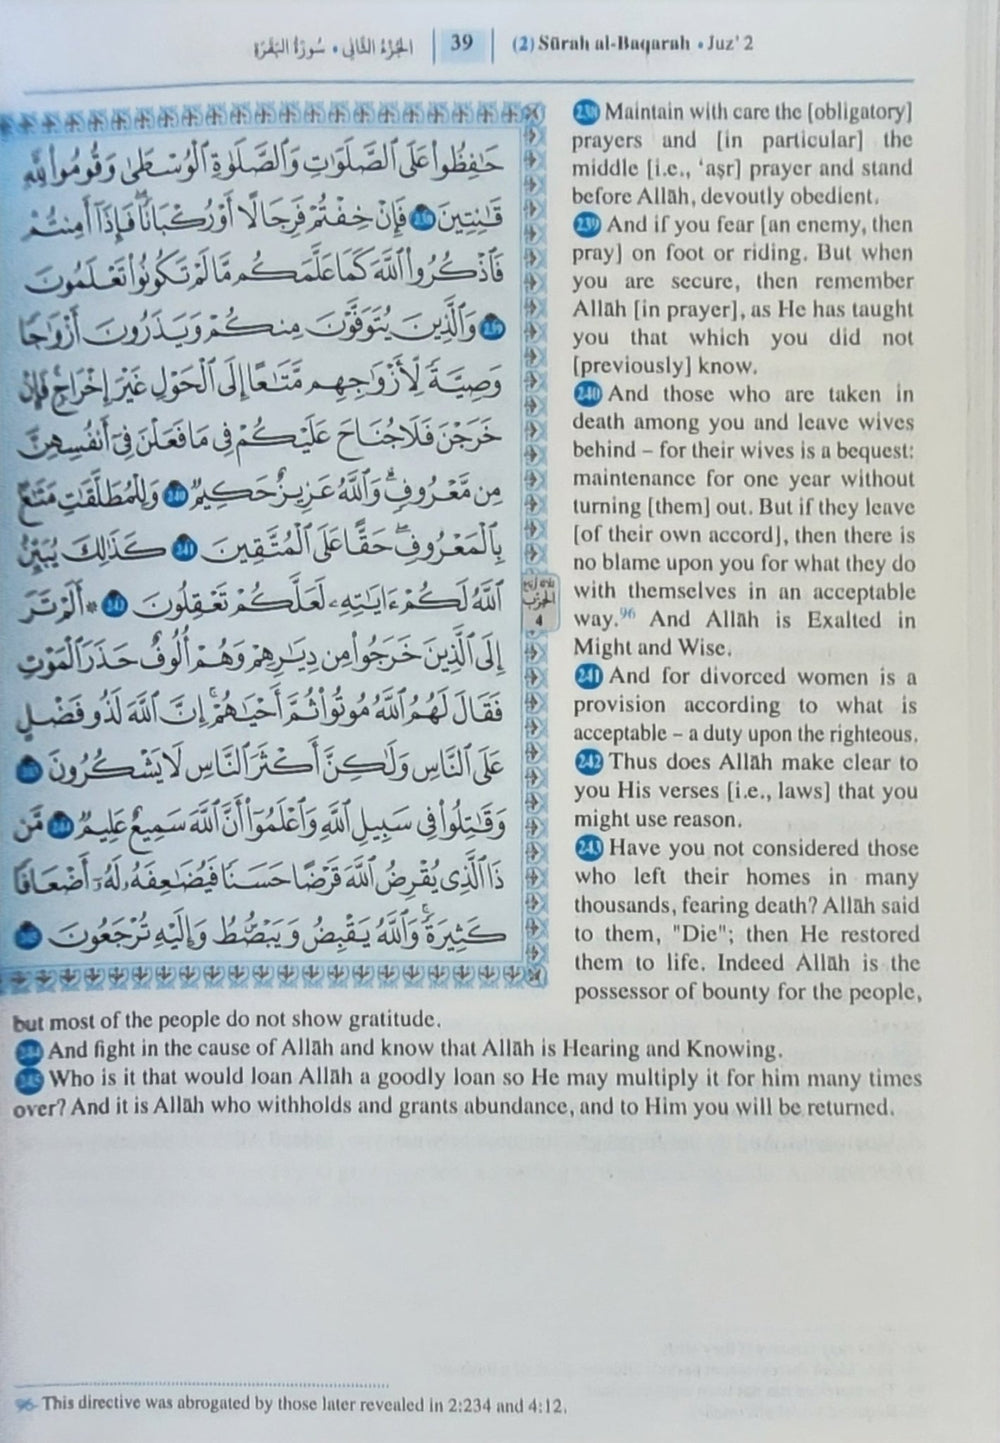 الجُزْءُ الثَّانِي • سُورَةُ البَقَرَة | 39 | (2) Sūrah al-Baqarah • Juz' 2
حَٰفِظُوا۟ عَلَى ٱلصَّلَوَٰتِ وَٱلصَّلَوٰةِ ٱلْوُسْطَىٰ وَقُومُوا۟ لِلَّهِ
قَٰنِتِينَ 238 فَإِنْ خِفْتُمْ فَرِجَالًا أَوْ رُكْبَانًا ۖ فَإِذَآ أَمِنتُمْ
فَٱذْكُرُوا۟ ٱللَّهَ كَمَا عَلَّمَكُم مَّا لَمْ تَكُونُوا۟ تَعْلَمُونَ
239 وَٱلَّذِينَ يُتَوَفَّوْنَ مِنكُمْ وَيَذَرُونَ أَزْوَٰجًا
وَصِيَّةً لِّأَزْوَٰجِهِم مَّتَٰعًا إِلَى ٱلْحَوْلِ غَيْرَ إِخْرَاجٍ ۚ فَإِنْ
خَرَجْنَ فَلَا جُنَاحَ عَلَيْكُمْ فِى مَا فَعَلْنَ فِىٓ أَنفُسِهِنَّ
مِن مَّعْرُوفٍ ۗ وَٱللَّهُ عَزِيزٌ حَكِيمٌ 240 وَلِلْمُطَلَّقَٰتِ مَتَٰعٌۢ
بِٱلْمَعْرُوفِ ۖ حَقًّا عَلَى ٱلْمُتَّقِينَ 241 كَذَٰلِكَ يُبَيِّنُ
ٱللَّهُ لَكُمْ ءَايَٰتِهِۦ لَعَلَّكُمْ تَعْقِلُونَ 242 * أَلَمْ تَرَ
إِلَى ٱلَّذِينَ خَرَجُوا۟ مِن دِيَٰرِهِمْ وَهُمْ أُلُوفٌ حَذَرَ ٱلْمَوْتِ
فَقَالَ لَهُمُ ٱللَّهُ مُوتُوا۟ ثُمَّ أَحْيَٰهُمْ ۚ إِنَّ ٱللَّهَ لَذُو فَضْلٍ
عَلَى ٱلنَّاسِ وَلَٰكِنَّ أَكْثَرَ ٱلنَّاسِ لَا يَشْكُرُونَ 243
وَقَٰتِلُوا۟ فِى سَبِيلِ ٱللَّهِ وَٱعْلَمُوٓا۟ أَنَّ ٱللَّهَ سَمِيعٌ عَلِيمٌ 244 مَّن
ذَا ٱلَّذِى يُقْرِضُ ٱللَّهَ قَرْضًا حَسَنًا فَيُضَٰعِفَهُۥ لَهُۥٓ أَضْعَافًا
كَثِيرَةً ۚ وَٱللَّهُ يَقْبِضُ وَيَبْصُۜطُ وَإِلَيْهِ تُرْجَعُونَ 245
ثلاثة أرباع
الحزب
4
238 Maintain with care the [obligatory]
prayers and [in particular] the
middle [i.e., 'aṣr] prayer and stand
before Allāh, devoutly obedient.
239 And if you fear [an enemy, then
pray] on foot or riding. But when
you are secure, then remember
Allāh [in prayer], as He has taught
you that which you did not
[previously] know.
240 And those who are taken in
death among you and leave wives
behind – for their wives is a bequest:
maintenance for one year without
turning [them] out. But if they leave
[of their own accord], then there is
no blame upon you for what they do
with themselves in an acceptable
way.96 And Allāh is Exalted in
Might and Wise.
241 And for divorced women is a
provision according to what is
acceptable – a duty upon the righteous.
242 Thus does Allāh make clear to
you His verses [i.e., laws] that you
might use reason.
243 Have you not considered those
who left their homes in many
thousands, fearing death? Allāh said
to them, "Die"; then He restored
them to life. Indeed Allāh is the
possessor of bounty for the people,
but most of the people do not show gratitude.
244 And fight in the cause of Allāh and know that Allāh is Hearing and Knowing.
245 Who is it that would loan Allāh a goodly loan so He may multiply it for him many times
over? And it is Allāh who withholds and grants abundance, and to Him you will be returned.
96- This directive was abrogated by those later revealed in 2:234 and 4:12.